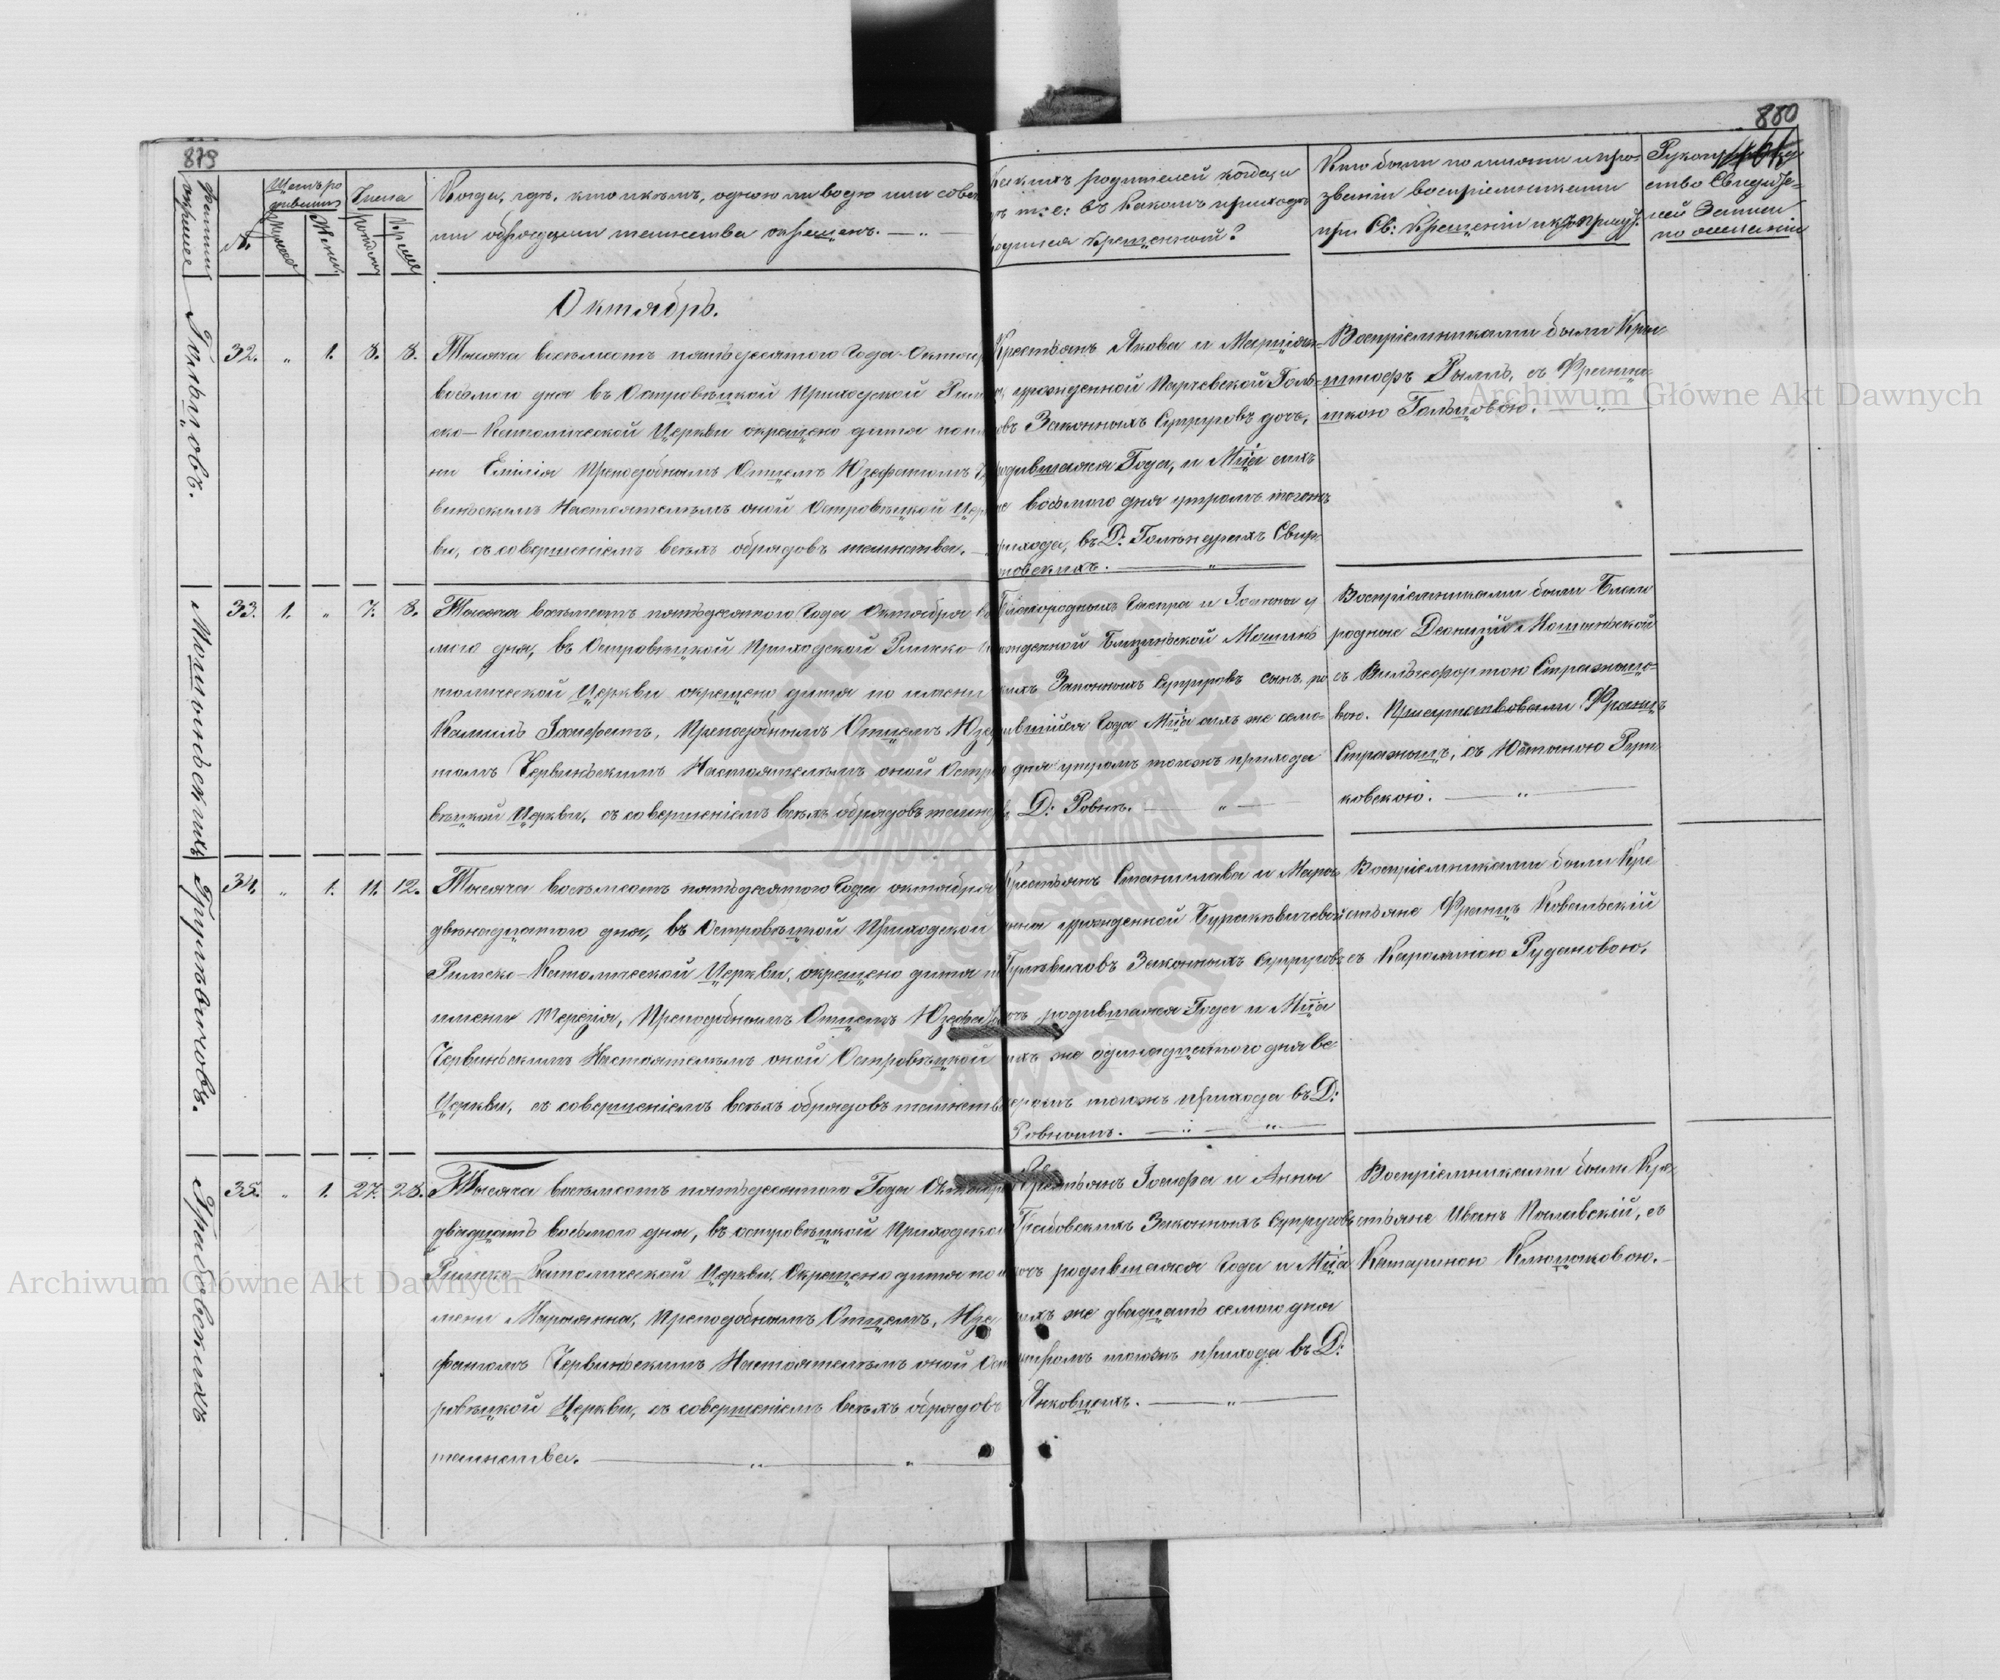 879
880
Фамилии окрищае
№.
Щетъ родившихъ
Мужеска
Женска
Числа
Рожден
Креще
Когда, гдѣ, кто и кѣмъ, одною ли водою или со всѣ
ми обрядами таинства окрещенъ.
какихъ родителей когда, и
гдѣ т: е: въ какомъ приходѣ
родился крещенный?
Кто были по имени и про-
званіи воспріемниками
при Св: Крещеніи и кто присут:
ство Свидѣте-
лей Записи
по
Октябрь.
Гольцовъ.
32. „ 1. 8. 8.
Тысяча восемьсотъ пятьдесятого Года Октября
восьмого дня въ Островѣцкой Приходской Рим
ско-Католической Церкви окрещено дитя по им
ни Емілія Преподобнымъ Отцемъ Юзефатомъ Чер
виньскимъ Настоятелемъ оной Островѣцкой Церк
ви, съ совершеніемъ всѣхъ обрядовъ таинства.
Крестьянъ Якова и Марціан-
ы, урожденной Парчевской Голь-
цовъ Законныхъ Супруговъ дочь,
родившаяся Года, и Мца сихъ
же восьмого дня утромъ тогожъ
прихода, въ Д: Гольндрахъ Свир-
товскихъ.
Воспріемниками были Кри-
штофъ Рымъ, съ Францы-
шкою Гольцовою.
Молиньскихъ
33. 1. „ 7. 8.
Тысяча восемьсотъ пятьдесятого Года Октября во
мого дня, въ Островѣцкой Приходской Римско-К
толической Церкви окрещено дитя по имени
Камиль Іосефатъ, Преподобнымъ Отцемъ Юзеф
томъ Червиньскимъ Настоятелемъ оной Остро
вѣцкой Церкви, съ совершеніемъ всѣхъ обрядовъ таинст
Благородныхъ Гаспра и Іоанны у
рожденной Молинь
кихъ Законныхъ Супруговъ сынъ, ро
дившійся Года Мца сихъ же седмо-
дня утромъ тогожъ прихода
въ Д: Ровнѣ.
Воспріемниками были Благо
родные Деонизій
съ Вильгефортою Стражицо-
вою. Присутствовали Францъ
Стражицъ, съ Юстиною Рут
ковскою.
Гулѣвичовъ.
34. „ 1. 11. 12.
Тысяча восемьсотъ пятьдесятого Года октября
двѣнадцатого дня, въ Островѣцкой Приходской
Римско-Католической Церкви, окрещено дитя п
имени Терезія, Преподобнымъ Отцемъ Юзефа
Червиньскимъ Настоятелемъ оной Островѣцкой
Церкви, съ совершеніемъ всѣхъ обрядовъ таинств
Крестьянъ Станислава и Мары-
анны урожденной Буракѣвичевой
Гулѣвичовъ Законныхъ Супруговъ
дочь родившаяся Года и Мца
сихъ же одинадцатого дня ве
черомъ тогожъ прихода въ Д:
Ровномъ.
Воспріемниками были Кре
стьяне Францъ Ковальскій
съ Каролиною Рудановою.
Грабовскихъ
35. „ 1. 27. 28.
Тысяча восемьсотъ пятьдесятого Года Октября
двадцать восьмого дня, въ островѣцкой Приходской
Римско-Католической Церкви, Окрещено дитя по и
мени Марыянна, Преподобнымъ Отцемъ, Юзе
фатомъ Червиньскимъ Настоятелемъ оной Ост
ровѣцкой Церкви, съ совершеніемъ всѣхъ обрядовъ
таинства.
Крестьянъ Іосифа и Анны
Грабовскихъ Законныхъ Супруговъ
дочь родившаяся Года и Мца
сихъ же двадцать семого дня
утромъ тогожъ прихода въ Д:
Янковцахъ.
Воспріемниками были Кре-
стьяне Иванъ Паславскій, съ
Катариною Клюшаковою.
Archiwum Główne Akt Dawnych
Archiwum Główne Akt Dawnych